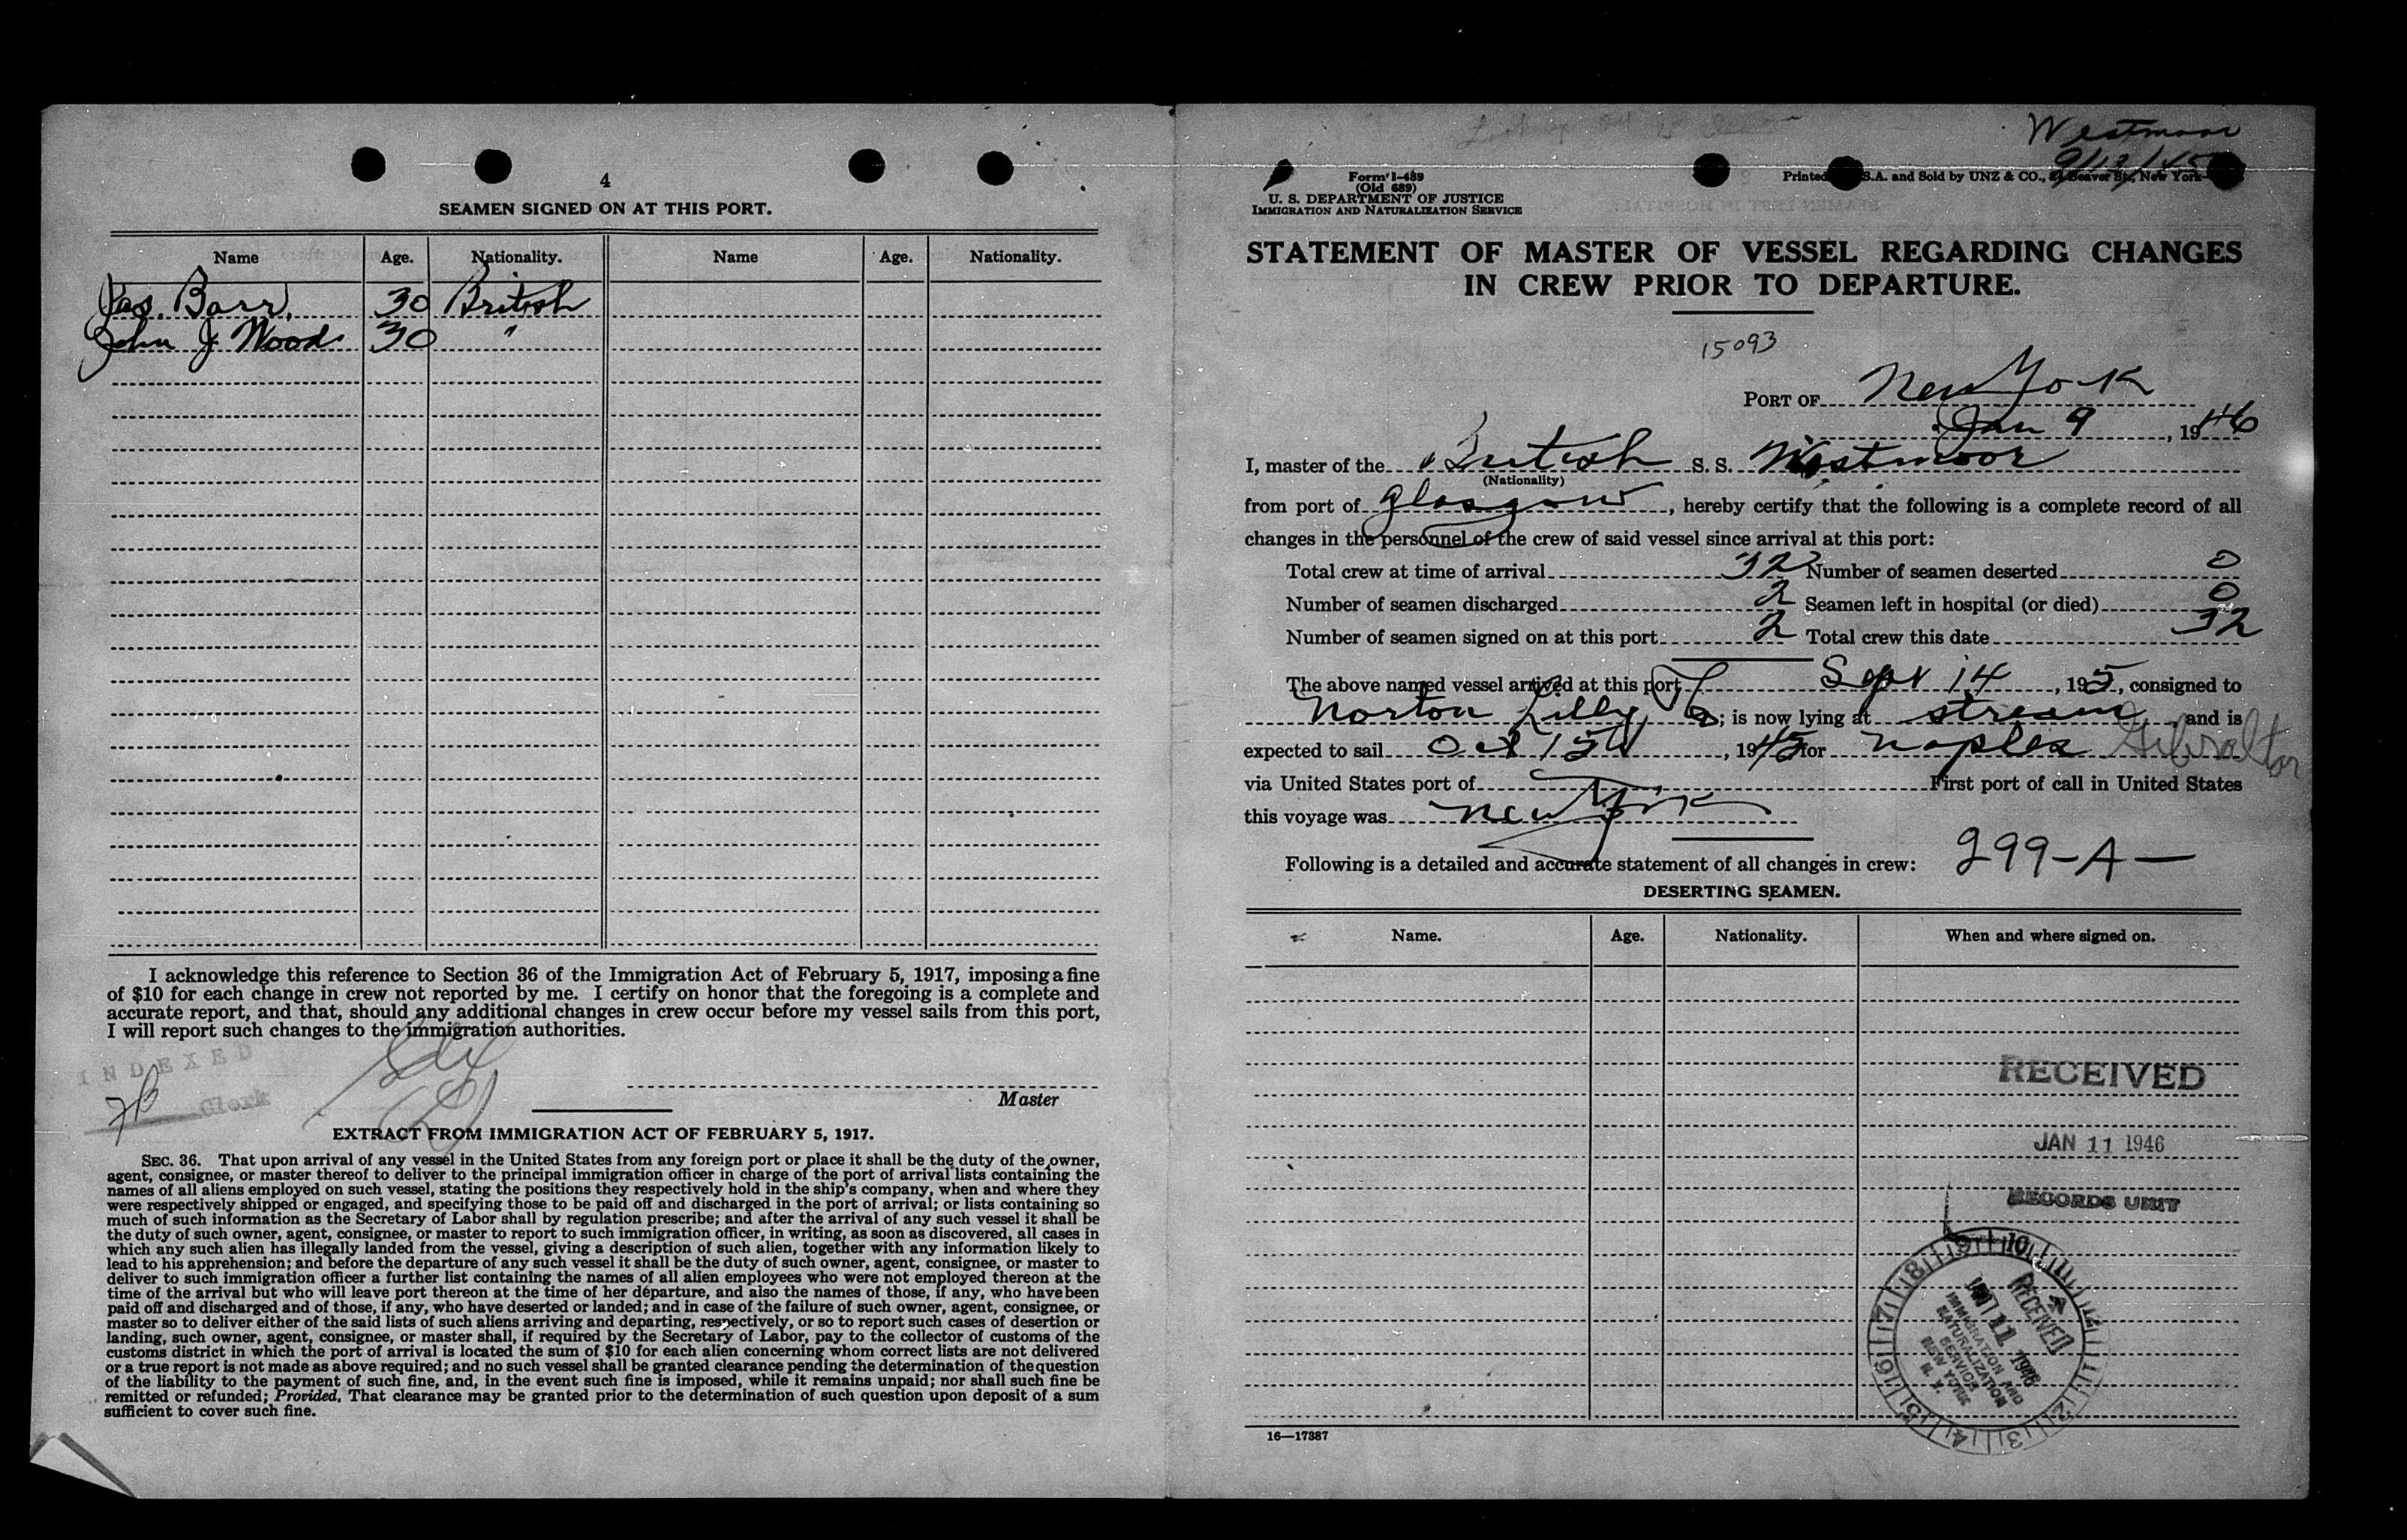 4
SEAMEN SIGNED ON AT THIS PORT.
Name Age. Nationality. Name Age. Nationality.
Jas. Barr. 30 British
John J Wood 30 "
I acknowledge this reference to Section 36 of the Immigration Act of February 5, 1917, imposing a fine
of $10 for each change in crew not reported by me. I certify on honor that the foregoing is a complete and
accurate report, and that, should any additional changes in crew occur before my vessel sails from this port,
I will report such changes to the immigration authorities.
INDEXED
Clerk
Master
EXTRACT FROM IMMIGRATION ACT OF FEBRUARY 5, 1917.
SEC. 36. That upon arrival of any vessel in the United States from any foreign port or place it shall be the duty of the owner,
agent, consignee, or master thereof to deliver to the principal immigration officer in charge of the port of arrival lists containing the
names of all aliens employed on such vessel, stating the positions they respectively hold in the ship's company, when and where they
were respectively shipped or engaged, and specifying those to be paid off and discharged in the port of arrival; or lists containing so
much of such information as the Secretary of Labor shall by regulation prescribe; and after the arrival of any such vessel it shall be
the duty of such owner, agent, consignee, or master to report to such immigration officer, in writing, as soon as discovered, all cases in
which any such alien has illegally landed from the vessel, giving a description of such alien, together with any information likely to
lead to his apprehension; and before the departure of any such vessel it shall be the duty of such owner, agent, consignee, or master to
deliver to such immigration officer a further list containing the names of all alien employees who were not employed thereon at the
time of the arrival but who will leave port thereon at the time of her departure, and also the names of those, if any, who have been
paid off and discharged and of those, if any, who have deserted or landed; and in case of the failure of such owner, agent, consignee, or
master so to deliver either of the said lists of such aliens arriving and departing, respectively, or so to report such cases of desertion or
landing, such owner, agent, consignee, or master shall, if required by the Secretary of Labor, pay to the collector of customs of the
customs district in which the port of arrival is located the sum of $10 for each alien concerning whom correct lists are not delivered
or a true report is not made as above required; and no such vessel shall be granted clearance pending the determination of the question
of the liability to the payment of such fine, and, in the event such fine is imposed, while it remains unpaid; nor shall such fine be
remitted or refunded; Provided, That clearance may be granted prior to the determination of such question upon deposit of a sum
sufficient to cover such fine.
Westmoor
9/13/45
Form I-489
(Old 689)
U. S. DEPARTMENT OF JUSTICE
IMMIGRATION AND NATURALIZATION SERVICE
Printed S.A. and Sold by UNZ & CO., Beaver St., New York
STATEMENT OF MASTER OF VESSEL REGARDING CHANGES
IN CREW PRIOR TO DEPARTURE.
15093
PORT OF New York
Jan 9, 1946
I, master of the British S. S. Westmoor
(Nationality)
from port of Glasgow, hereby certify that the following is a complete record of all
changes in the personnel of the crew of said vessel since arrival at this port:
Total crew at time of arrival 32 Number of seamen deserted 0
Number of seamen discharged 2 Seamen left in hospital (or died) 0
Number of seamen signed on at this port 2 Total crew this date 32
The above named vessel arrived at this port Sept 14, 195, consigned to
Norton Lilly Co; is now lying at stream, and is
expected to sail Oct 15th, 1945 for Naples Gibraltar
via United States port of First port of call in United States
this voyage was New York
Following is a detailed and accurate statement of all changes in crew: 299-A-
DESERTING SEAMEN.
Name. Age. Nationality. When and where signed on.
RECEIVED
JAN 11 1946
RECORDS UNIT
RECEIVED
JAN 11 1946
IMMIGRATION AND
NATURALIZATION
SERVICE
NEW YORK
N. Y.
16—17387